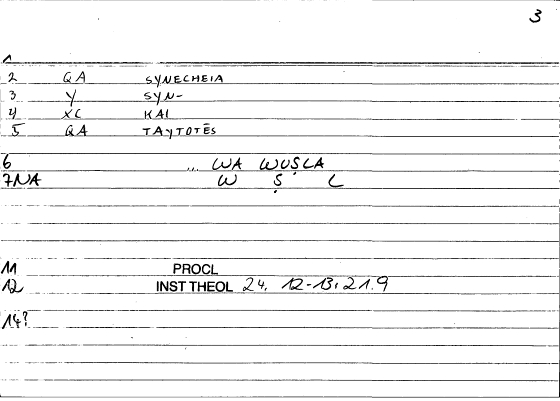 3
1
2 QA SYNECHEIA
3 Y SYN-
4 XC KAI
5 QA TAYTOTĒS
6 ... WA WUṢLA
7NA W Ṣ L
11 PROCL
12 INST THEOL 24, 12-13; 21.9
14?